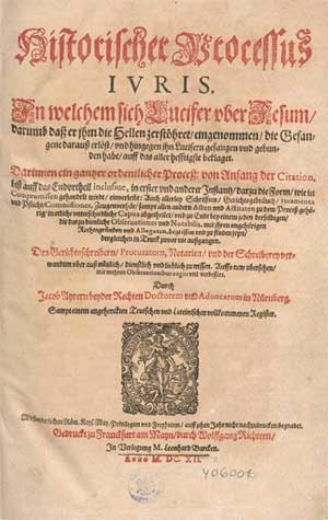 Historischer Processus
IVRIS.
In welchem sich Lucifer vber Jesum/
darumb daß er jhm die Hellen zerstöhret/ eingenommen/ die Gefan-
gene darauß erlöst/ vnd hingegen jhn Lucifern gefangen vnd gebun-
den habe/ auff das aller hefftigste beklaget.
Darinnen ein gantzer ordenlicher Proceß/ von Anfang der Citation,
biß auff das Endvrtheil inclusiue, in erster vnd anderer Instantz/ darzu die Form/ wie in
Compromissen gehandelt wirdt/ einverleibt: Auch allerley Schrifften/ Gerichtsgebräuch/ Iuramenta
Commissiones, Zeugenverhör/ sampt allen andern Acten vnd Actitaten zu dem Proceß gehö-
rig/ in etliche vnterschiedliche Capita abgetheilet/ vnd zu Ende bey einem jeden derselbigen/
die darzu dienliche Obseruationes vnd Notabilia, mit jhren angehörigen
Rechtsgründen vnd Allegaten, begriffen vnd zu finden/ so
dergleichen in Truck zuuor nie außgangen.
Den Gerichtschreibern/ Procuratorn, Notarien/ vnd der Schreiberey ver-
wandten vber auß nützlich/ dienstlich vnd lieblich zu wissen. Auffs new vbersehen/
mit mehrern Obseruationibus augirt vnd verbessert.
Durch
Jacob Ayrern beyder Rechten Doctorem vnd Aduocatum in Nürnberg.
Sampt einem angehenckten Teutschen vnd Lateinischen vollkommenen Register.
Mit sonderlichen Röm. Keys. May. Privilegien vnd Freyheiten/ auff zehen Jahr nicht nachzudrucken begnadet.
Gedruckt zu Franckfurt am Mayn/ durch Wolffgang Richtern/
In Verlegung M. Leonhard Burcken.
Anno M. DC. XII.
406001